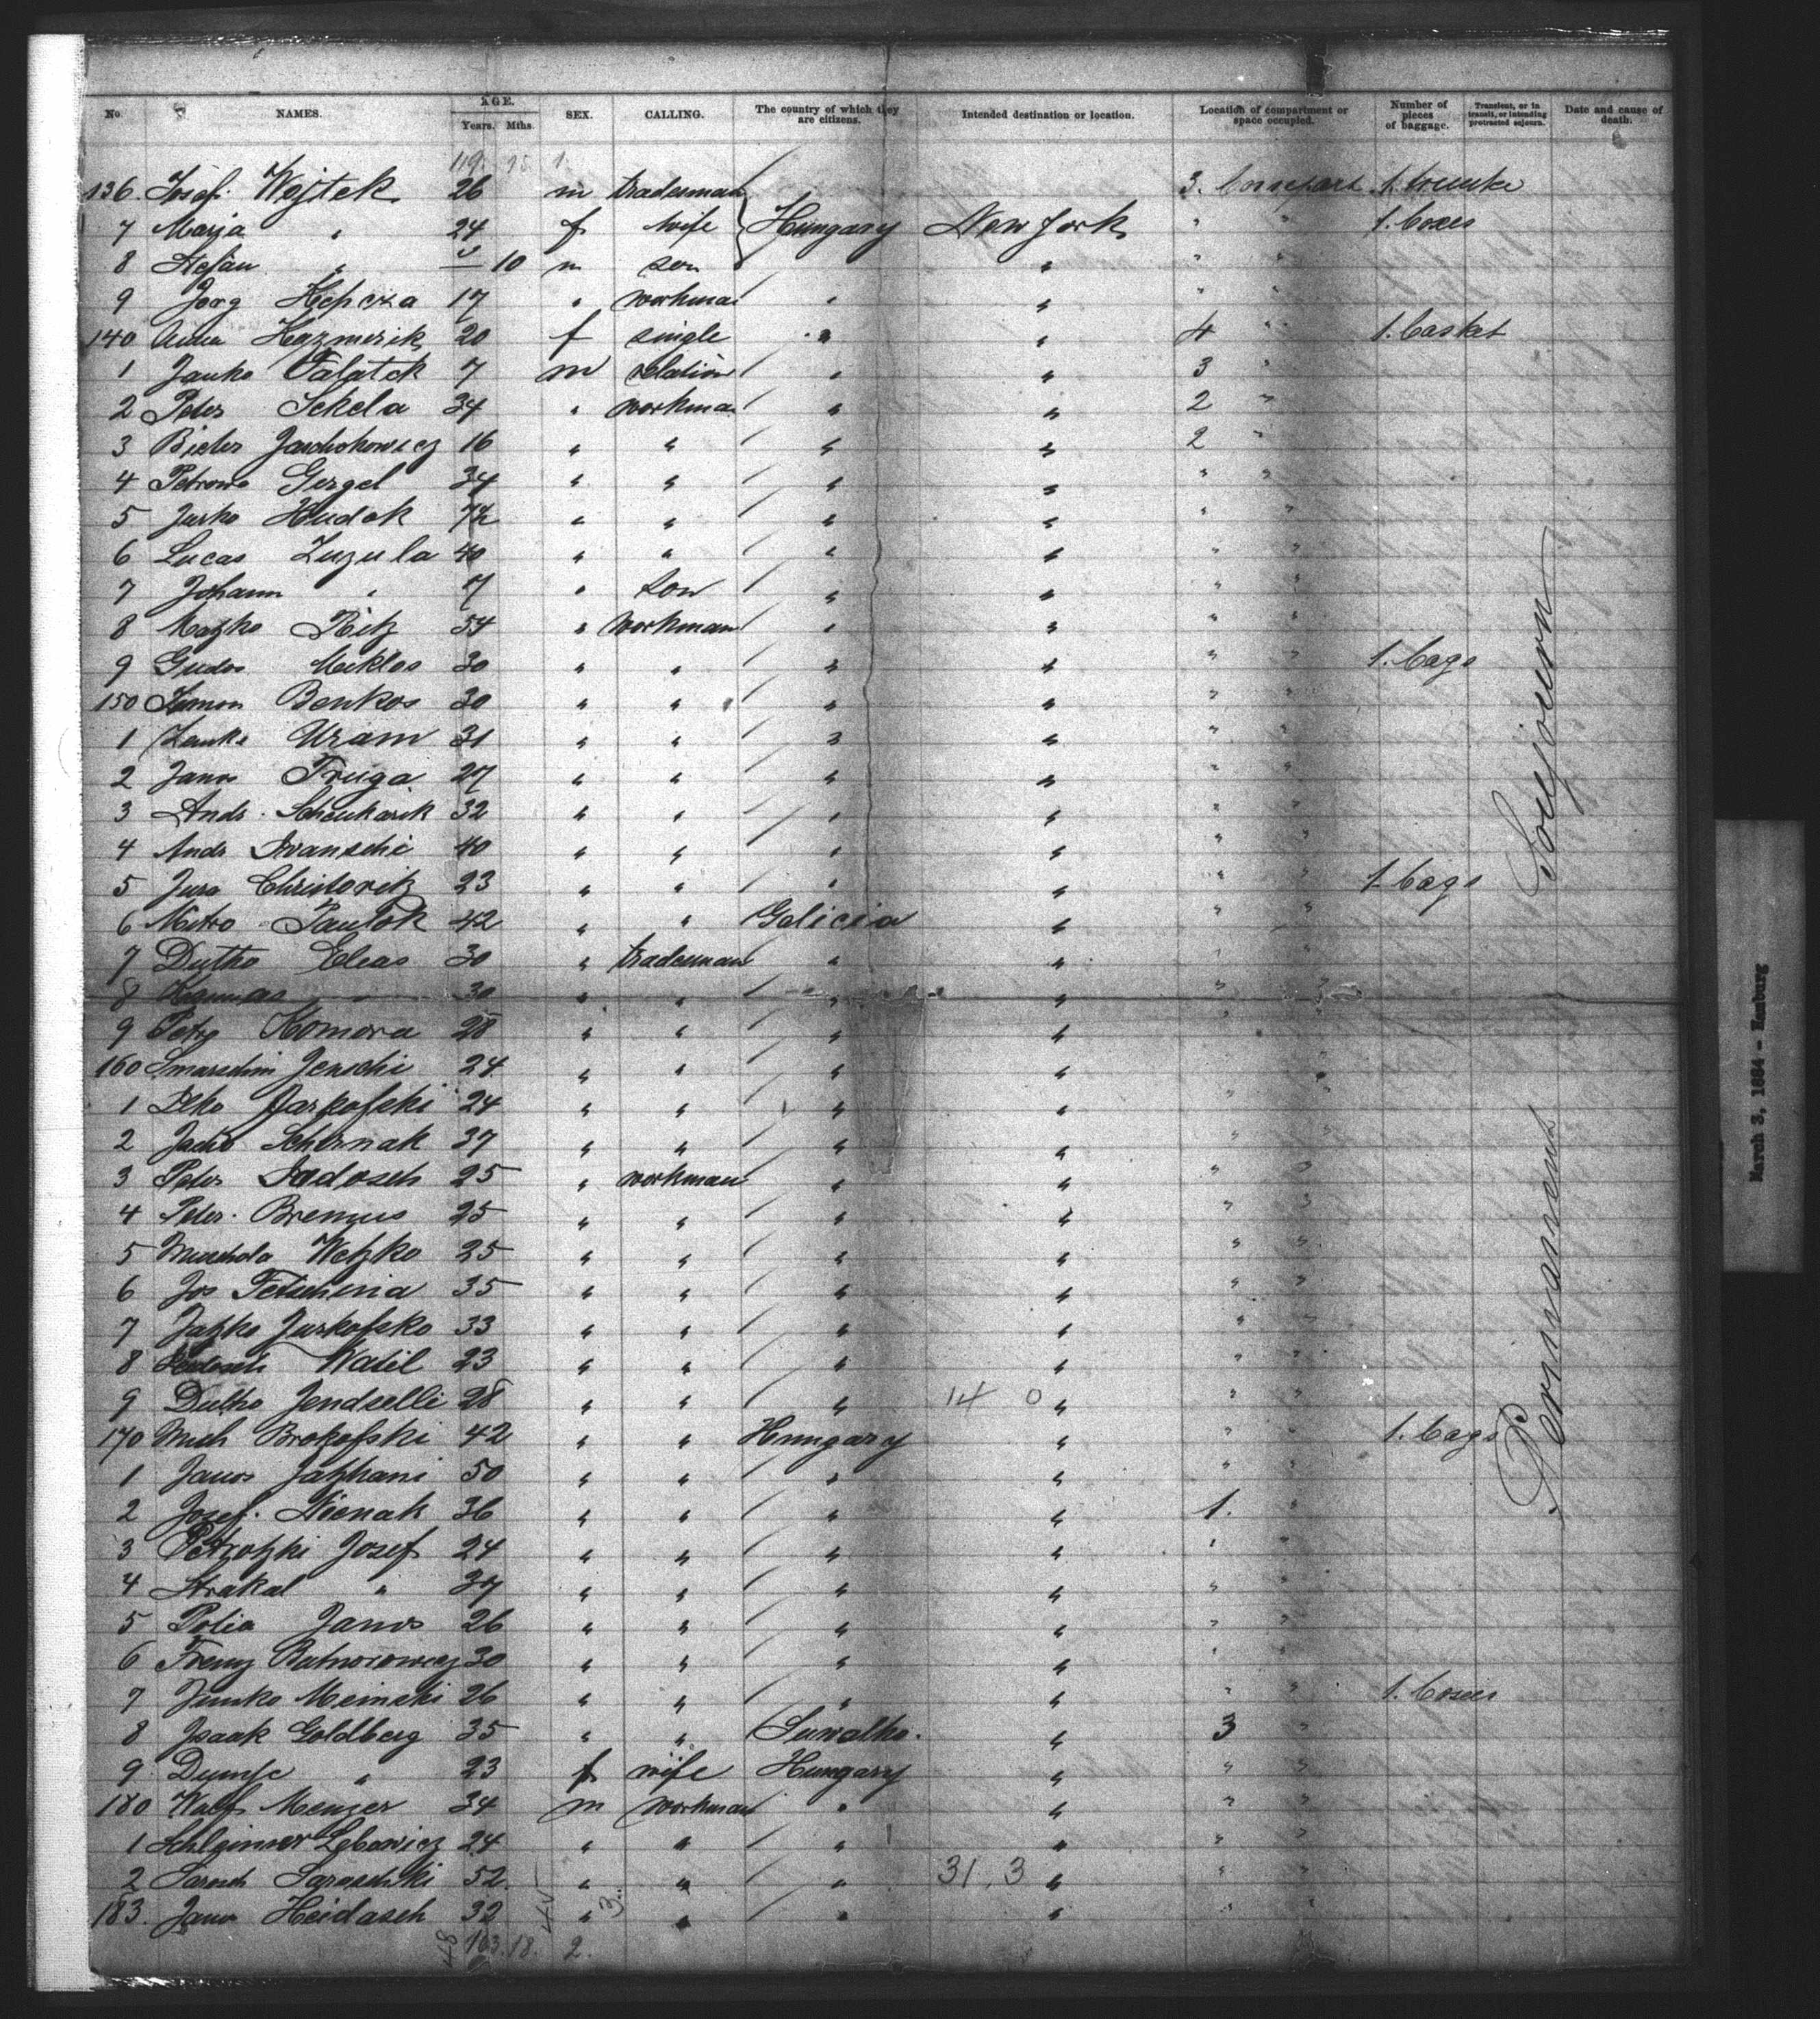 No. NAMES. AGE. Years. Mths. SEX. CALLING. The country of which they are citizens. Intended destination or location. Location of compartment or space occupied. Number of pieces of baggage. Transient, or in transit, or intending protracted sojourn. Date and cause of death.
119. 15. 1.
136. Josef. Wojtek 26 m tradesman 3. Compart 1. trunke
7 Marja " 24 f wife Hungary New York " " 1. boxes
8 Stefan " — 10 m son " " "
9 Jorg Kepcza 17 " workman " " " "
140 Anna Kazmerik 20 f single " " 4 " 1. basket
1 Janko Talatek 7 m relation " " 3 "
2 Peter Sekela 34 " workma. " " 2 "
3 Bieter 16 " " " " 2 "
4 Gergel 34 " " " " " "
5 Jurko Hudak " " " " " "
6 Lucas Zuzula 40 " " " " " "
7 Johann " 7 " son " " " "
8 Mazko Ritz 34 " workman " " " "
9 Gudos Miklos 30 " " " " " " 1. bags
150 Simon Benkos 30 " " " " " "
1 Uram 31 " " " " " "
2 Janos Fruga 27 " " " " " "
3 Andr. 32 " " " " " "
4 Andr Iwanschi 40 " " " " " "
5 Jura Christovitz 23 " " " " " " 1. bags
6 Pawlok 42 " " Galicia " " "
7 Dutko Eleas 30 " tradesman " " " "
8 " 30 " " " " " "
9 Petro Komora 28 " " " " " "
160 Jenschi 24 " " " " "
1 Jarkofski 24 " " " " "
2 Schirnak 37 " " " " " "
3 Peter Iadosch 25 " workman " " " "
4 Peter. Bremus 25 " " " " " "
5 Wetzko 25 " " " " " "
6 Jos Fetschina 35 " " " " " "
7 Jatzko Jurkofsko 33 " " " " " "
8 Wasil 23 " " " " " "
9 Dutko Jendselli 28 " " " 14 0 " " "
170 Mich Brokofski 42 " " Hungary " " " 1. bags
1 Janos Jatzhani 50 " " " " " "
2 Josef. 36 " " " " 1. "
3 Petrotzki Josef 24 " " " " " "
4 Strakal " 37 " " " " " "
5 Polia Janos 26 " " " " " "
6 Franz 30 " " " " " "
7 Janko 26 " " " " " " 1. boxes
8 Isaak Goldberg 35 " " Suwalko. " 3 "
9 " 23 f wife Hungary " " "
180 Wolf Menzer 34 m workman " " " "
1 Lebowicz 24 " " " " " "
2 Saraschki 52. " " " 31. 3 " " "
183. Janos Heidasch 32 " " " "
48 163. 18. 2.
Permanent Soujourn
March 3, 1884 - Hamburg